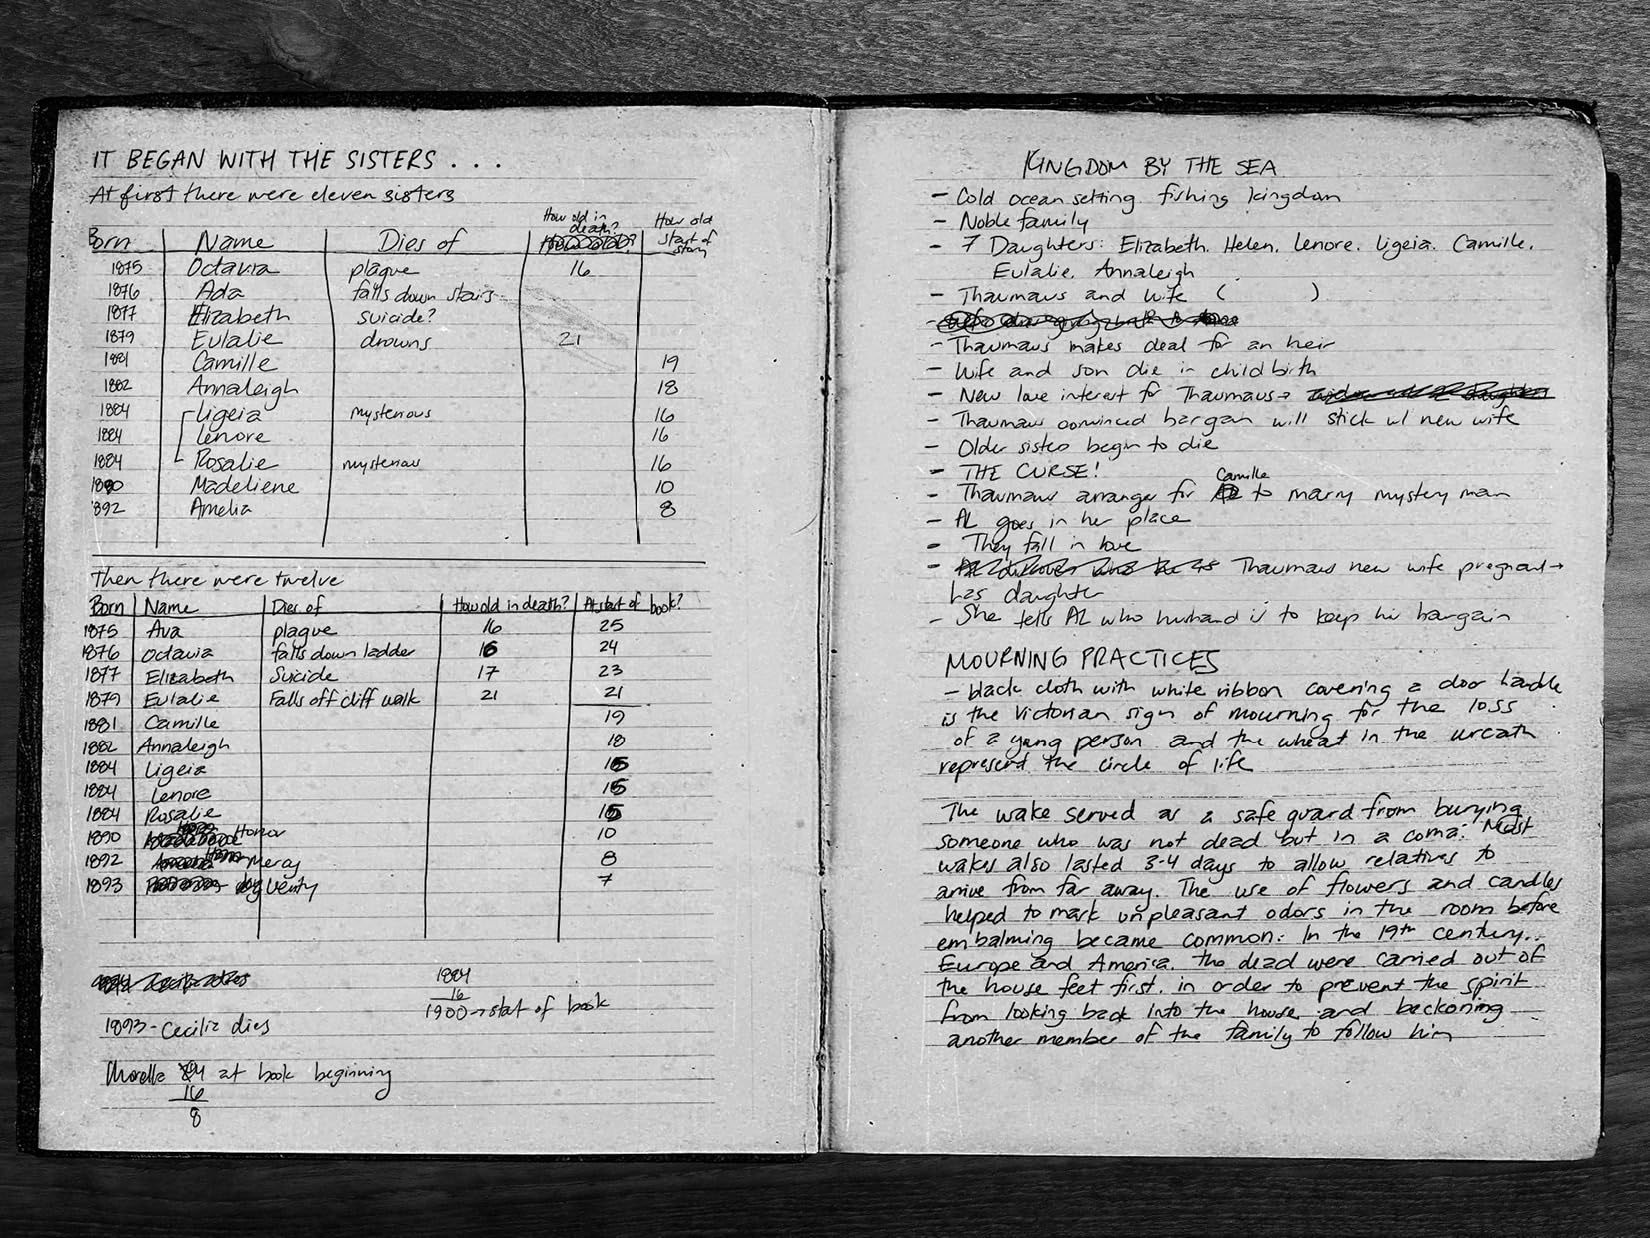 IT BEGAN WITH THE SISTERS . . .
At first there were eleven sisters
Born Name Dies of How old in death? How old start of story
1875 Octavia plague 16
1876 Ada falls down stairs
1877 Elizabeth suicide?
1879 Eulalie drowns 21
1881 Camille 19
1882 Annaleigh 18
1884 Ligeia mysterious 16
1884 Lenore 16
1884 Rosalie mysterious 16
1890 Madeliene 10
1892 Amelia 8
Then there were twelve
Born Name Dies of How old in death? At start of book?
1875 Ava plague 16 25
1876 Octavia falls down ladder 16 24
1877 Elizabeth Suicide 17 23
1879 Eulalie Falls off cliff walk 21 21
1881 Camille 19
1882 Annaleigh 18
1884 Ligeia 15
1884 Lenore 15
1884 Rosalie 15
1890 Honor 10
1892 Mercy 8
1893 Verity 7
1884
16
1900 → start of book
1893 - Cecilia dies
Morella at book beginning
16
8
KINGDOM BY THE SEA
- Cold ocean setting fishing kingdom
- Noble family
- 7 Daughters: Elizabeth, Helen, Lenore, Ligeia, Camille,
Eulalie, Annaleigh
- Thaumaus and wife ( )
- Thaumaus makes deal for an heir
- Wife and son die in childbirth
- New love interest for Thaumaus →
- Thaumaus convinced bargain will stick w/ new wife
- Older sisters begin to die
- THE CURSE!
- Thaumaus arranges for Camille to marry mystery man
- AL goes in her place
- They fall in love
- Thaumaus new wife pregnant →
has daughter
- She tells AL who husband is to keep his bargain
MOURNING PRACTICES
- black cloth with white ribbon covering a door handle
is the Victorian sign of mourning for the loss
of a young person and the wheat in the wreath
represent the circle of life
The wake served as a safe guard from burying
someone who was not dead but in a coma. Most
wakes also lasted 3-4 days to allow relatives to
arrive from far away. The use of flowers and candles
helped to mask unpleasant odors in the room before
embalming became common. In the 19th century..
Europe and America, the dead were carried out of
the house feet first, in order to prevent the spirit
from looking back into the house and beckoning
another member of the family to follow him